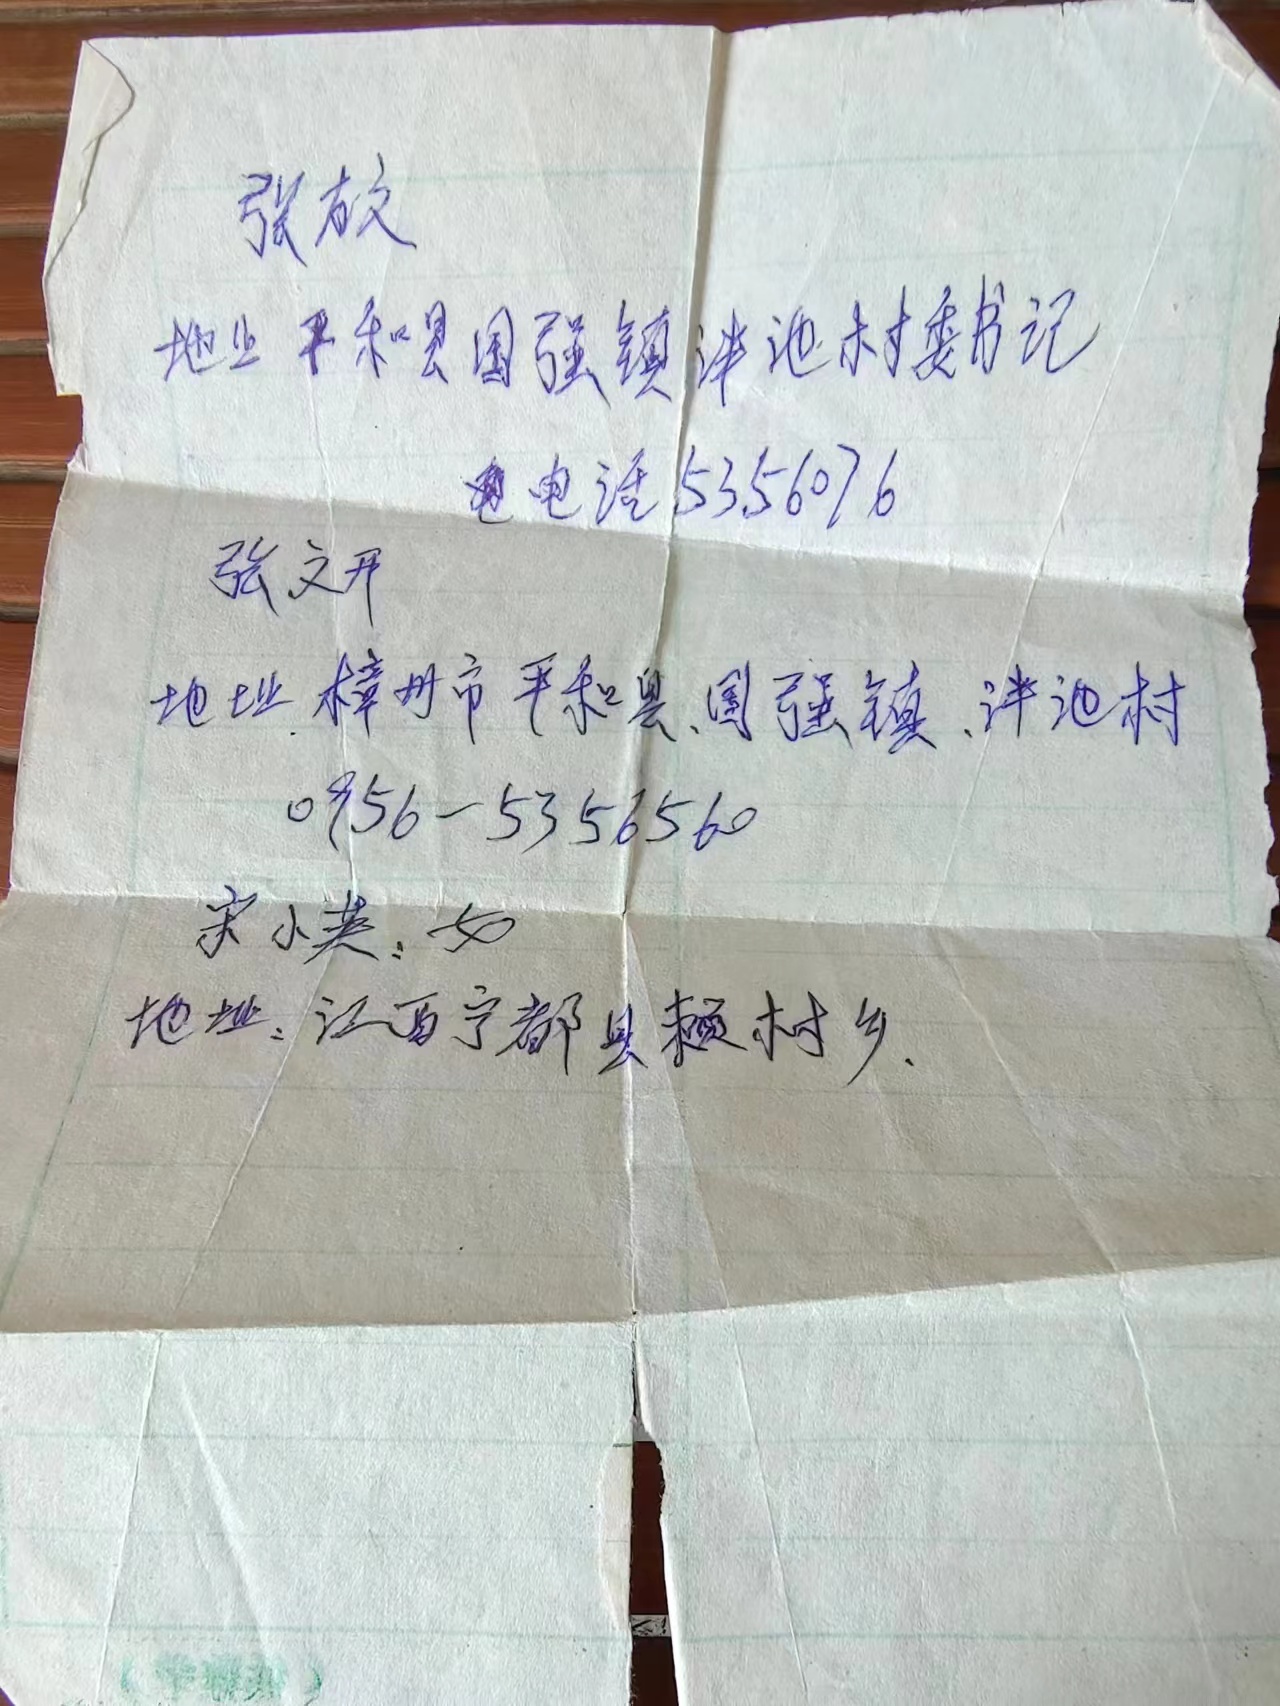 张有文
地业 平和县国强镇泮池村委书记
电话5356076
张文开
地址.樟州市平和县、国强镇、泮池村
0956-5356560
宋小英:女
地址:江西宁都县赖村乡.